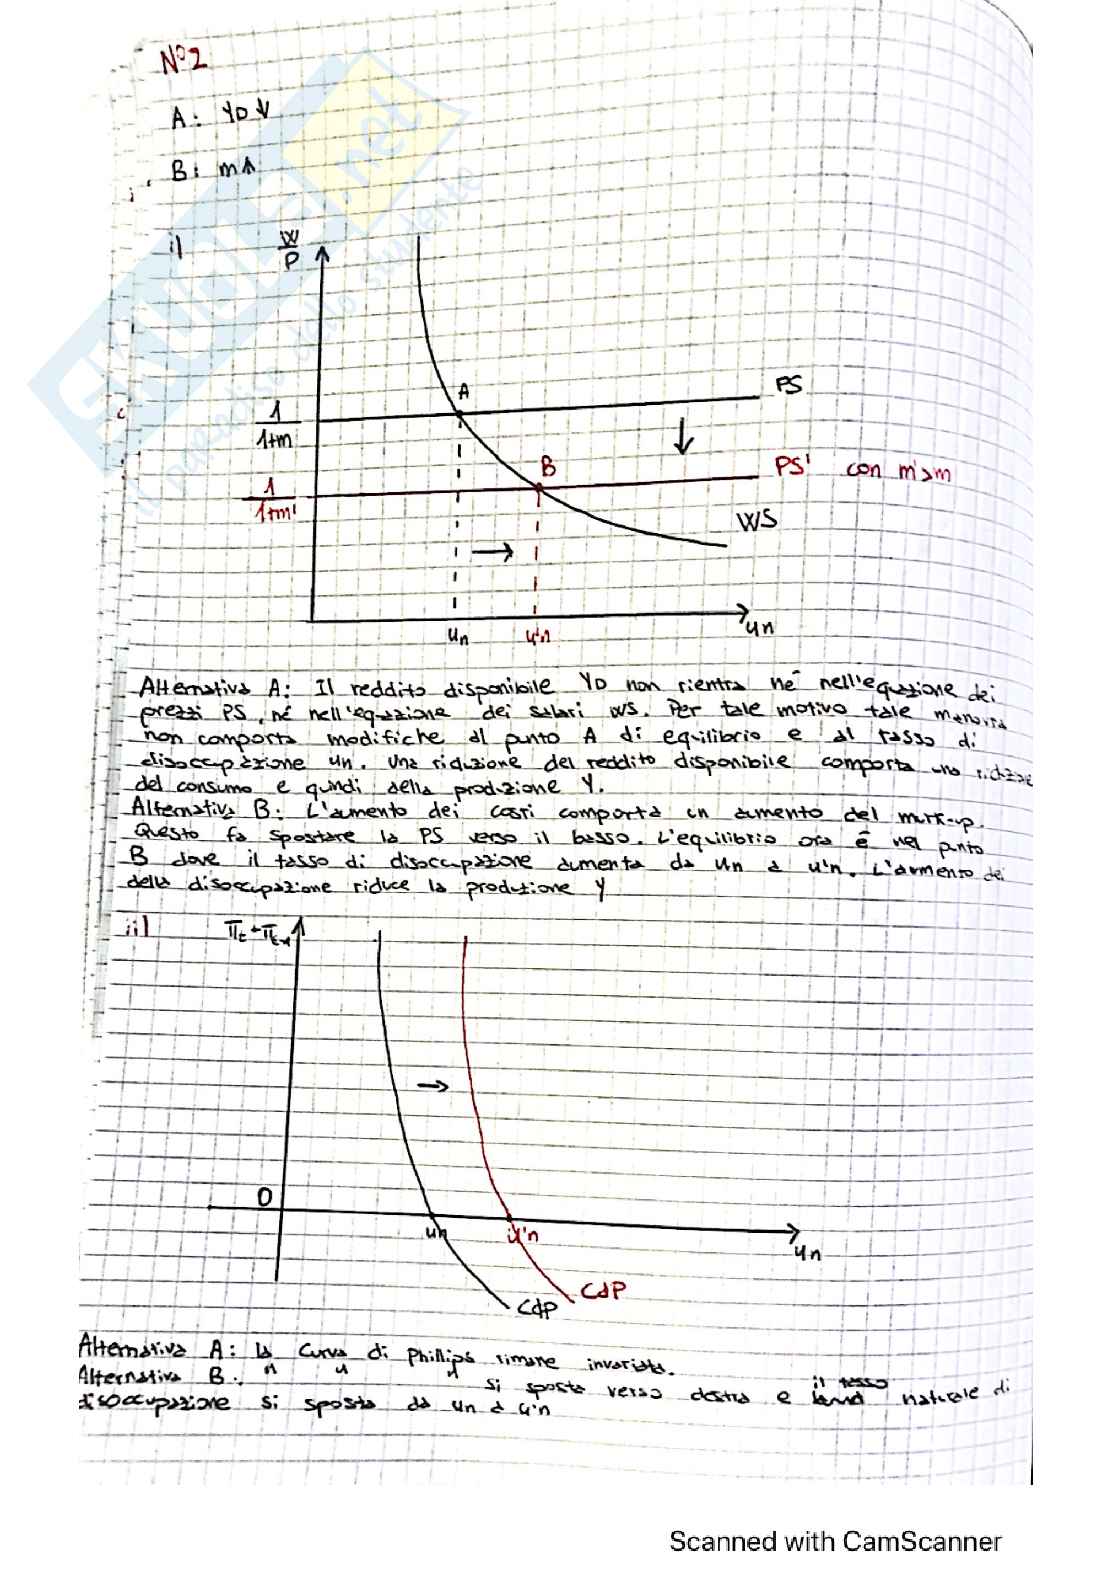 N°2
A: YD ↓
B: m ↑
i)
W/P
A
PS
1/1+m
B
PS' con m'>m
1/1+m'
WS
un
u'n
un
Alternativa A: Il reddito disponibile YD non rientra né nell'equazione dei
prezzi PS, né nell'equazione dei salari WS. Per tale motivo tale manovra
non comporta modifiche al punto A di equilibrio e al tasso di
disoccupazione un. Una riduzione del reddito disponibile comporta una riduzione
del consumo e quindi della produzione Y.
Alternativa B: L'aumento dei costi comporta un aumento del mark-up.
Questo fa spostare la PS verso il basso. L'equilibrio ora è nel punto
B dove il tasso di disoccupazione aumenta da un a u'n. L'aumento dei
della disoccupazione riduce la produzione Y
ii)
πt-πt-1
0
un
u'n
un
CdP
CdP
Alternativa A: la curva di Phillips rimane invariata.
Alternativa B: " " " si sposta verso destra e il tasso naturale di
disoccupazione si sposta da un a u'n
Scanned with CamScanner
SKUOLA.net
il paradiso dello studente